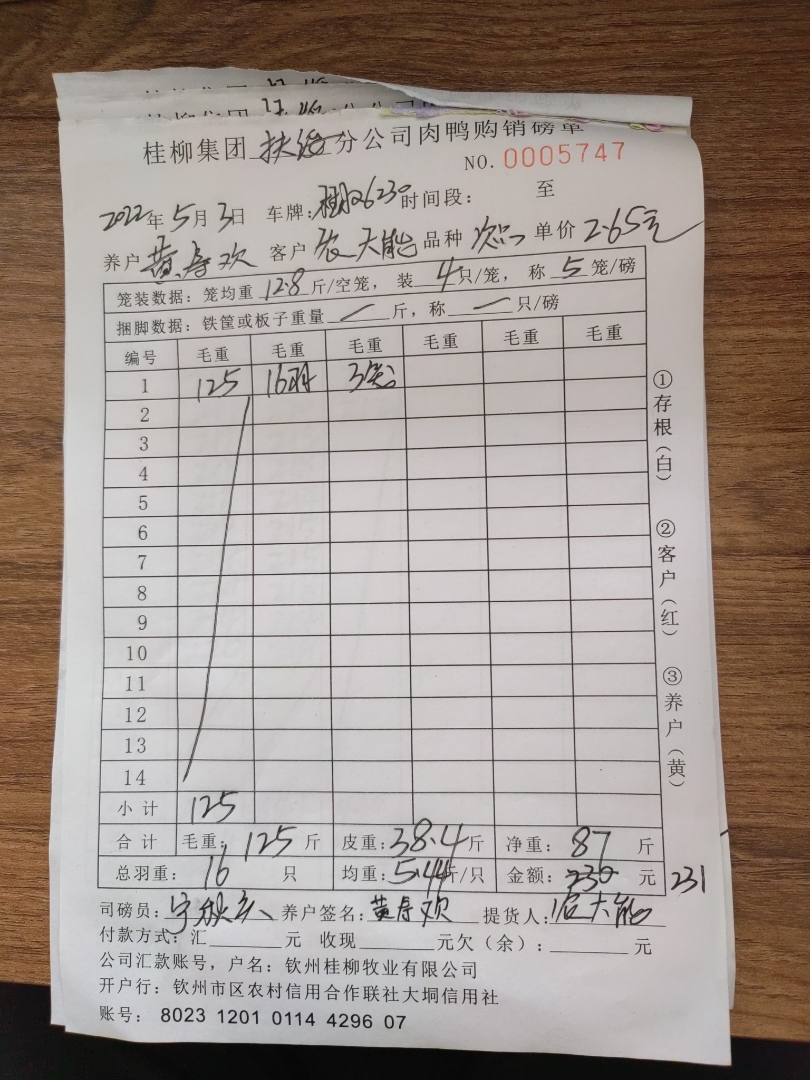 桂柳集团 分公司肉鸭购销磅单
NO. 0005747
2022年5月3日 车牌: 6230 时间段: 至
养户 黄寿欢 客户 农天能 品种 次品 单价 2.65元
笼装数据: 笼均重 12.8 斤/空笼, 装 4 只/笼, 称 5 笼/磅
捆脚数据: 铁筐或板子重量 — 斤, 称 — 只/磅
编号 毛重 毛重 毛重 毛重 毛重 毛重
1 125 16羽 3笼
2
3
4
5
6
7
8
9
10
11
12
13
14
小计 125
合计 毛重: 125 斤 皮重: 38.4 斤 净重: 87 斤
总羽重: 16 只 均重: 5.44 斤/只 金额: 230 元 231
司磅员: 养户签名: 黄寿欢 提货人: 农天能
付款方式: 汇 元 收现 元欠(余): 元
公司汇款账号, 户名: 钦州桂柳牧业有限公司
开户行: 钦州市区农村信用合作联社大垌信用社
账号: 8023 1201 0114 4296 07
①存根(白)
②客户(红)
③养户(黄)